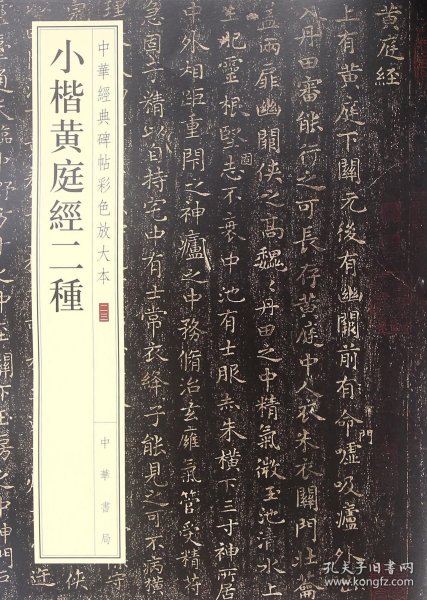 黄庭經
上有黄庭下關元後有幽闕前有命嘘吸廬外出
門
入丹田審能行之可長存黄庭中人衣朱衣關門壯籥
蓋兩扉幽闕俠之高魏〻丹田之中精氣微玉池清水上
生肥靈根堅志不衰中池有士服赤朱横下三寸神所居
中外相距重閉之神廬之中務脩治玄廱氣管受精符
急固子精以自持宅中有士常衣絳子能見之可不病横
中華經典碑帖彩色放大本
小楷黄庭經二種
中華書局
孔夫子旧书网
www.kongfz.com